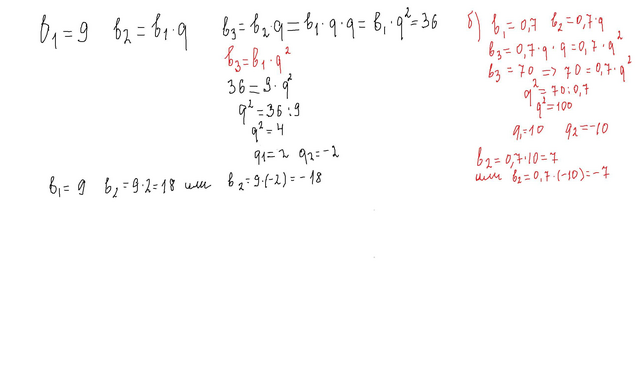 b₁ = 9   b₂ = b₁·q   b₃ = b₂·q = b₁·q·q = b₁·q² = 36
b₃ = b₁·q²
36 = 9·q²
q² = 36:9
q² = 4
q₁ = 2   q₂ = -2
b₁ = 9   b₂ = 9·2 = 18 или   b₂ = 9·(-2) = -18
б) b₁ = 0,7   b₂ = 0,7·q
b₃ = 0,7·q·q = 0,7·q²
b₃ = 70 => 70 = 0,7·q²
q² = 70:0,7
q² = 100
q₁ = 10   q₂ = -10
b₂ = 0,7·10 = 7
или b₂ = 0,7·(-10) = -7